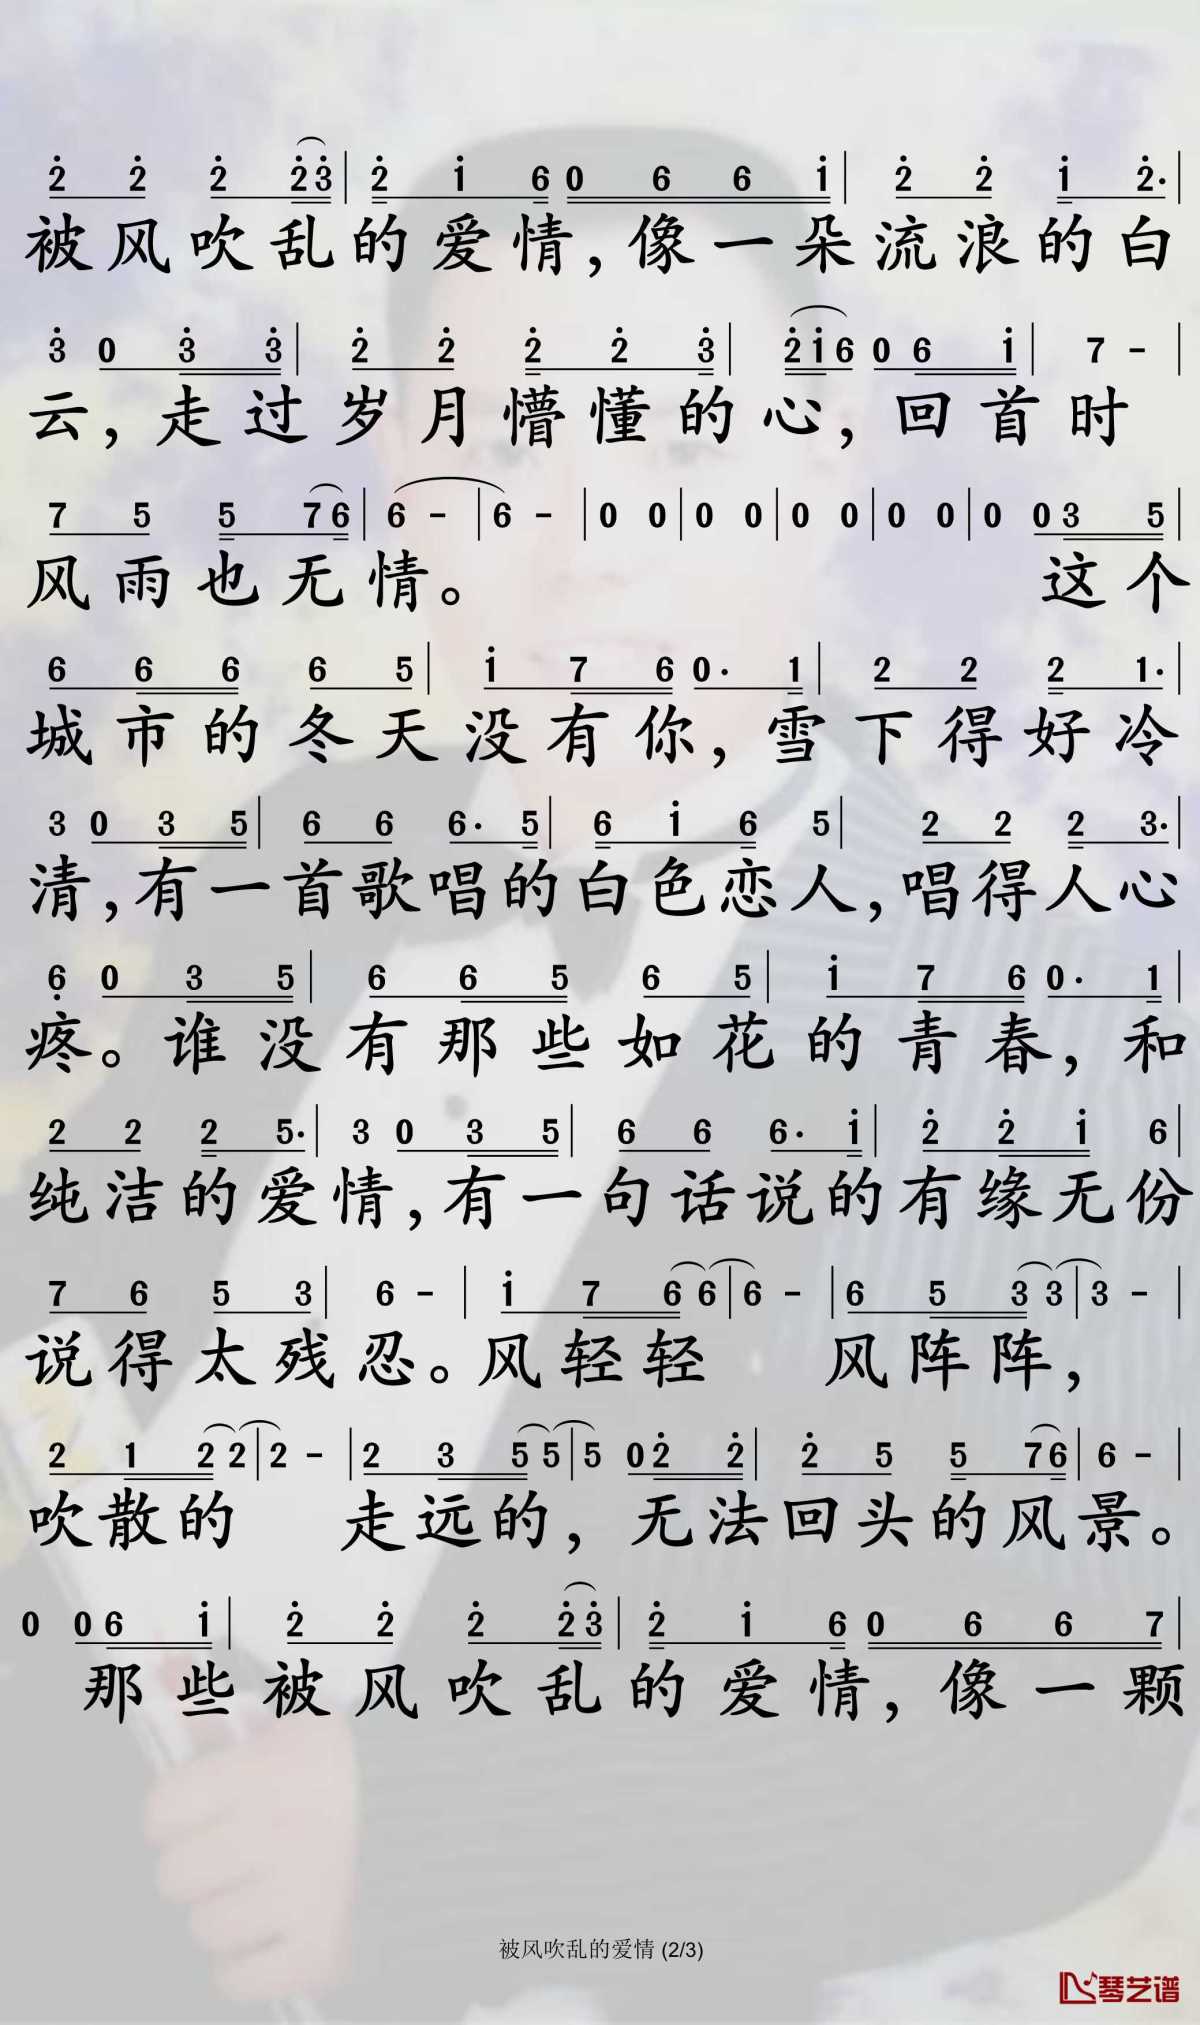 2̇ 2̇ 2̇ 2̇3̇ | 2̇ 1̇ 6 0 6 6 1̇ | 2̇ 2̇ 1̇ 2̇· |
被风吹乱的爱情，像一朵流浪的白
3̇ 0 3̇ 3̇ | 2̇ 2̇ 2̇ 2̇ 3̇ | 2̇1̇6 0 6 1̇ | 7 - |
云，走过岁月懵懂的心，回首时
7 5 5 76 | 6 - | 6 - | 0 0 | 0 0 | 0 0 | 0 0 | 0 03 5 |
风雨也无情。 这个
6 6 6 6 5 | 1̇ 7 6 0· 1 | 2 2 2 1· |
城市的冬天没有你，雪下得好冷
3 0 3 5 | 6 6 6· 5 | 6 1̇ 6 5 | 2 2 2 3· |
清，有一首歌唱的白色恋人，唱得人心
6̣ 0 3 5 | 6 6 5 6 5 | 1̇ 7 6 0· 1 |
疼。谁没有那些如花的青春，和
2 2 2 5· | 3 0 3 5 | 6 6 6· 1̇ | 2̇ 2̇ 1̇ 6 |
纯洁的爱情，有一句话说的有缘无份
7 6 5 3 | 6 - | 1̇ 7 6 6 | 6 - | 6 5 3 3 | 3 - |
说得太残忍。风轻轻 风阵阵，
2 1 2 2 | 2 - | 2 3 5 5 | 5 02̇ 2̇ | 2̇ 5 5 76 | 6 - |
吹散的 走远的，无法回头的风景。
0 06 1̇ | 2̇ 2̇ 2̇ 2̇3̇ | 2̇ 1̇ 6 0 6 6 7 |
那些被风吹乱的爱情，像一颗
被风吹乱的爱情 (2/3)
琴艺谱